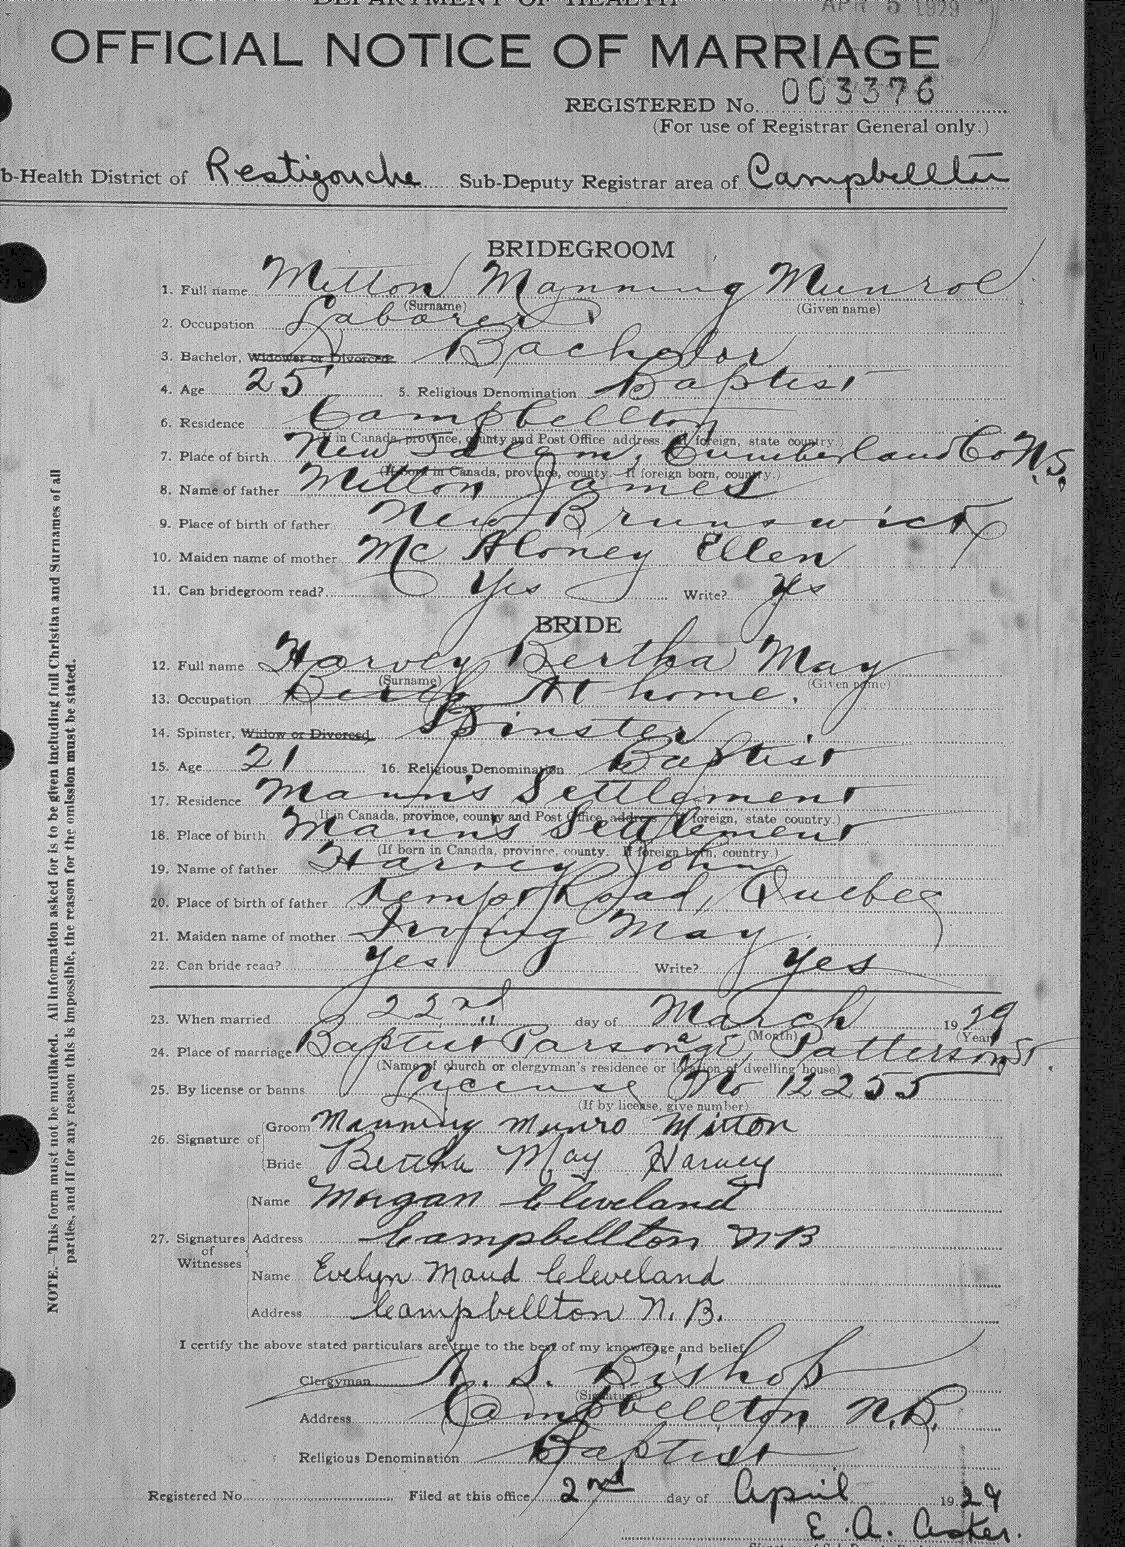 DEPARTMENT OF HEALTH
APR 5 1929
OFFICIAL NOTICE OF MARRIAGE
REGISTERED No. 003376
(For use of Registrar General only.)
b-Health District of Restigouche Sub-Deputy Registrar area of Campbellton
BRIDEGROOM
1. Full name Mitton Manning Munroe
(Surname) (Given name)
2. Occupation Laborer
3. Bachelor, Widower or Divorced Bachelor
4. Age 25 5. Religious Denomination Baptist
6. Residence Campbellton
(If in Canada, province, county and Post Office address. If foreign, state country.)
7. Place of birth New Salem, Cumberland Co N.S.
(If born in Canada, province, county. If foreign born, country.)
8. Name of father Mitton James
9. Place of birth of father New Brunswick
10. Maiden name of mother McAloney Ellen
11. Can bridegroom read? Yes Write? Yes
BRIDE
12. Full name Harvey Bertha May
(Surname) (Given name)
13. Occupation At home.
14. Spinster, Widow or Divorced, Spinster
15. Age 21 16. Religious Denomination Baptist
17. Residence Mann's Settlement
(If in Canada, province, county and Post Office address. If foreign, state country.)
18. Place of birth Mann's Settlement
(If born in Canada, province, county. If foreign born, country.)
19. Name of father Harvey John
20. Place of birth of father Kempt Road, Quebec
21. Maiden name of mother Irving May
22. Can bride read? Yes Write? Yes
23. When married 22nd day of March 1929
(Month) (Year)
24. Place of marriage Baptist Parsonage, Patterson St.
(Name of church or clergyman's residence or location of dwelling house)
25. By license or banns License No 12255
(If by license, give number)
26. Signature of Groom Manning Munro Mitton
Bride Bertha May Harvey
27. Signatures of Witnesses Name Morgan Cleveland
Address Campbellton NB
Name Evelyn Maud Cleveland
Address Campbellton N.B.
I certify the above stated particulars are true to the best of my knowledge and belief
Clergyman A. S. Bishop
(Signature)
Address Campbellton N.B.
Religious Denomination Baptist
Registered No. Filed at this office 2nd day of April 1929
E. A.
NOTE.—This form must not be mutilated. All information asked for is to be given including full Christian and Surnames of all
parties, and if for any reason this is impossible, the reason for the omission must be stated.